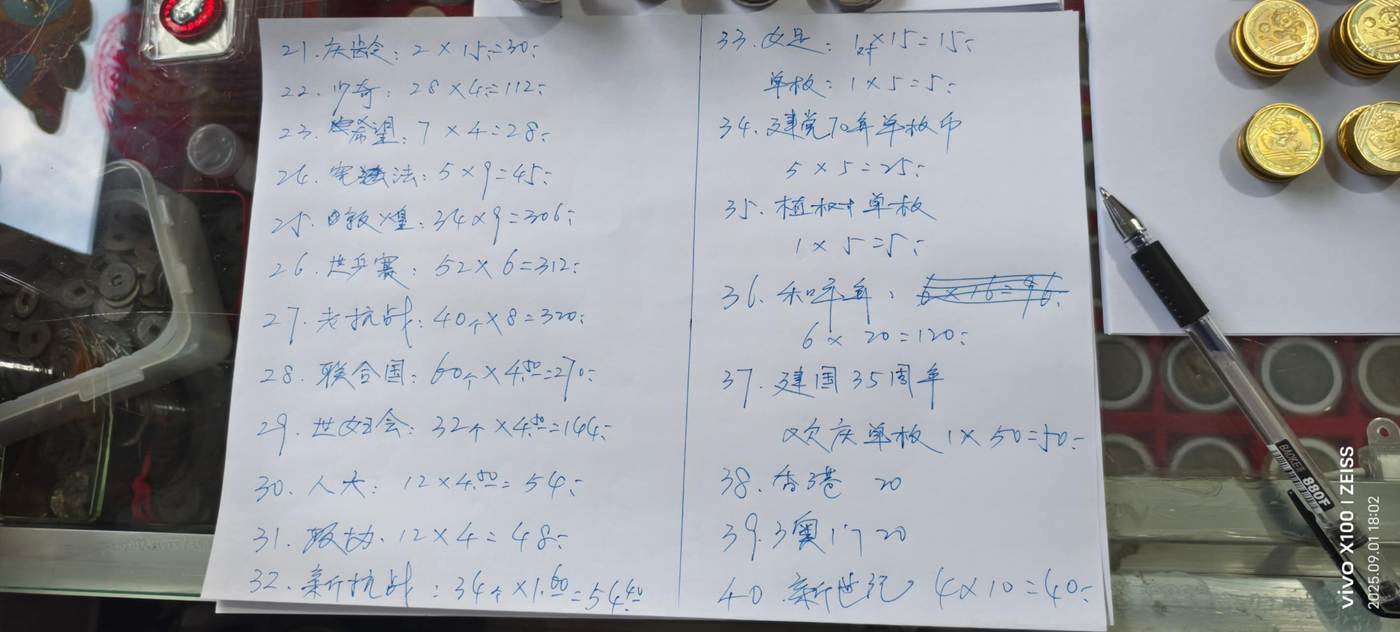 21.庆龄:2×15=30:
22.少奇:28×4=112:
23.希望:7×4=28:
24.宪法:5×9=45:
25.敦煌:34×9=306:
26.世乒赛:52×6=312:
27.老抗战:40个×8=320:
28.联合国:60个×4.50=270:
29.世妇会:32个×4.50=144:
30.人大:12×4.50=54:
31.政协.12×4=48:
32.新抗战:34个×1.60=54.40
33.女足:1对×15=15:
单枚:1×5=5:
34.建党70年单枚币
5×5=25:
35.植树单枚
1×5=5:
36.和平年:6×16=96.
6×20=120:
37.建国35周年
欢庆单枚1×50=50:
38.香港 20
39.澳门20
40.新世纪 4×10=40:
BAOKE 880F
vivo X100 | ZEISS
2025.09.01 18:02